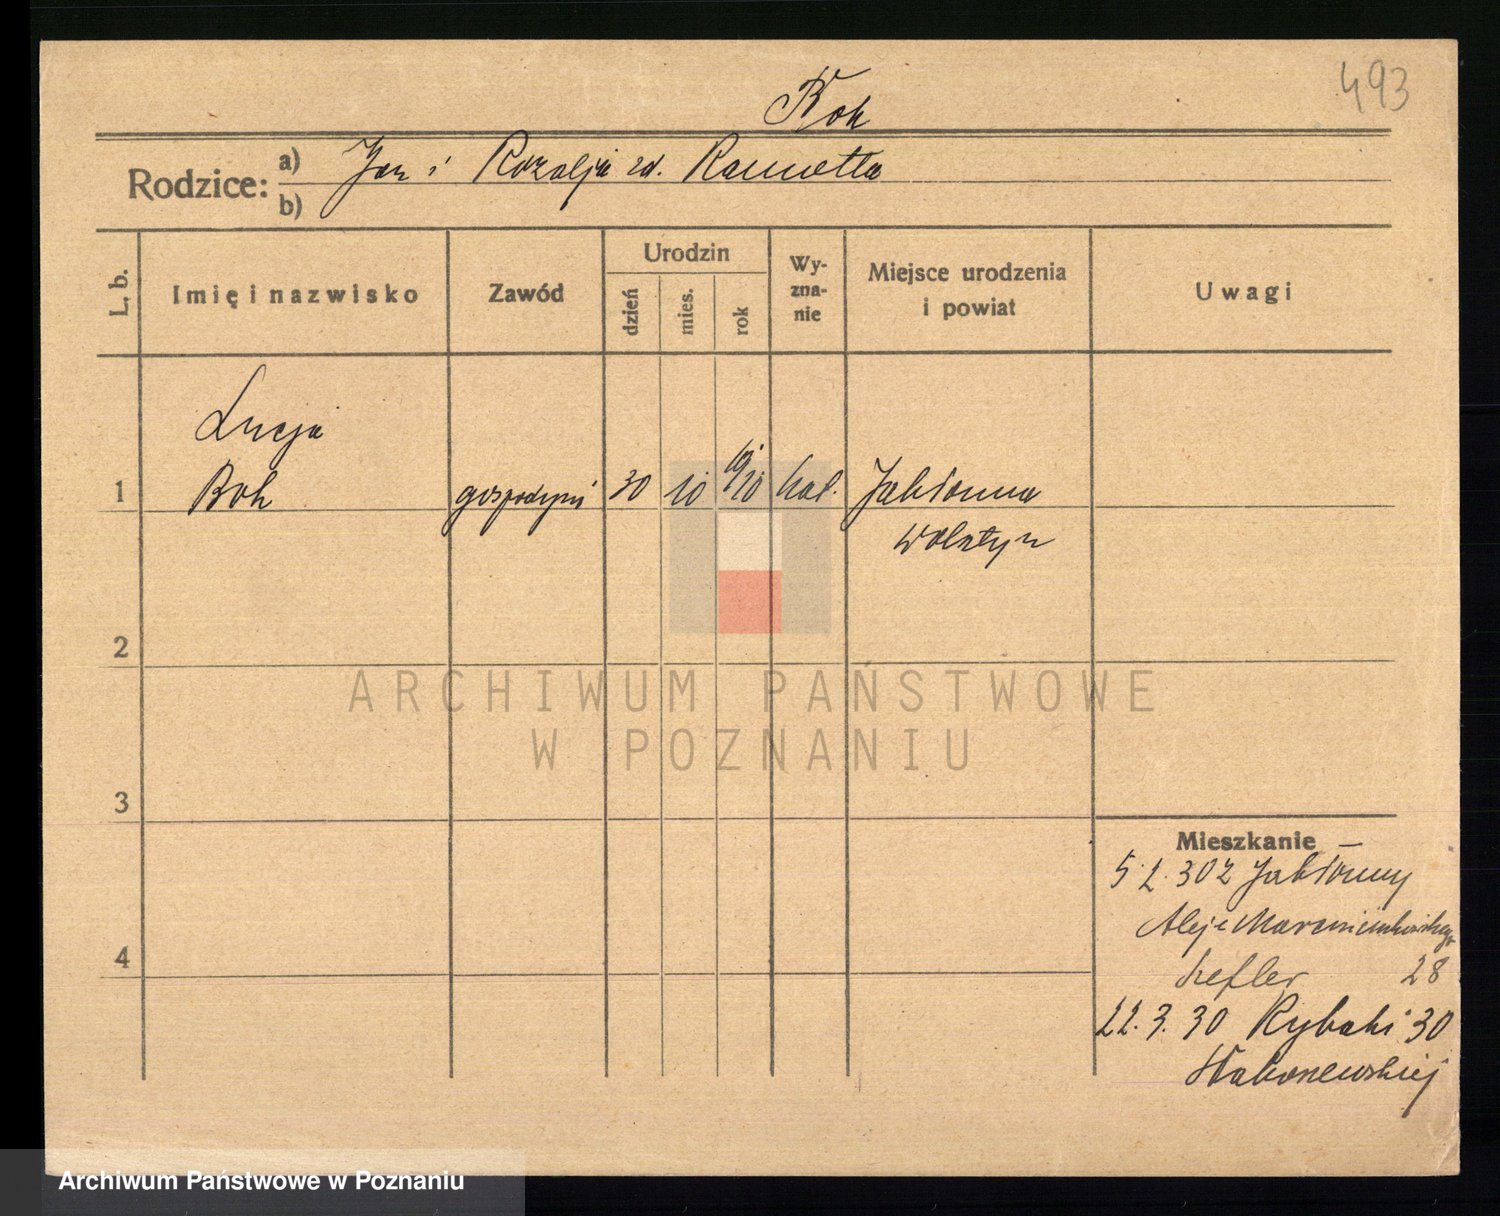 493
Bok
Rodzice: a) Jan i Rozalja zd. Ramotta
b)
L. b. Imię i nazwisko Zawód Urodzin dzień mies. rok Wyznanie Miejsce urodzenia i powiat Uwagi
Łucja
1 Bok gospodyni 30 10 1910 kat. Jabłonna
Wolsztyn
2
ARCHIWUM PAŃSTWOWE
W POZNANIU
3
Mieszkanie
5.2.30 z Jabłonny
Aleje Marcinkowskiego
28
4
22.3.30 Rybaki 30
Archiwum Państwowe w Poznaniu